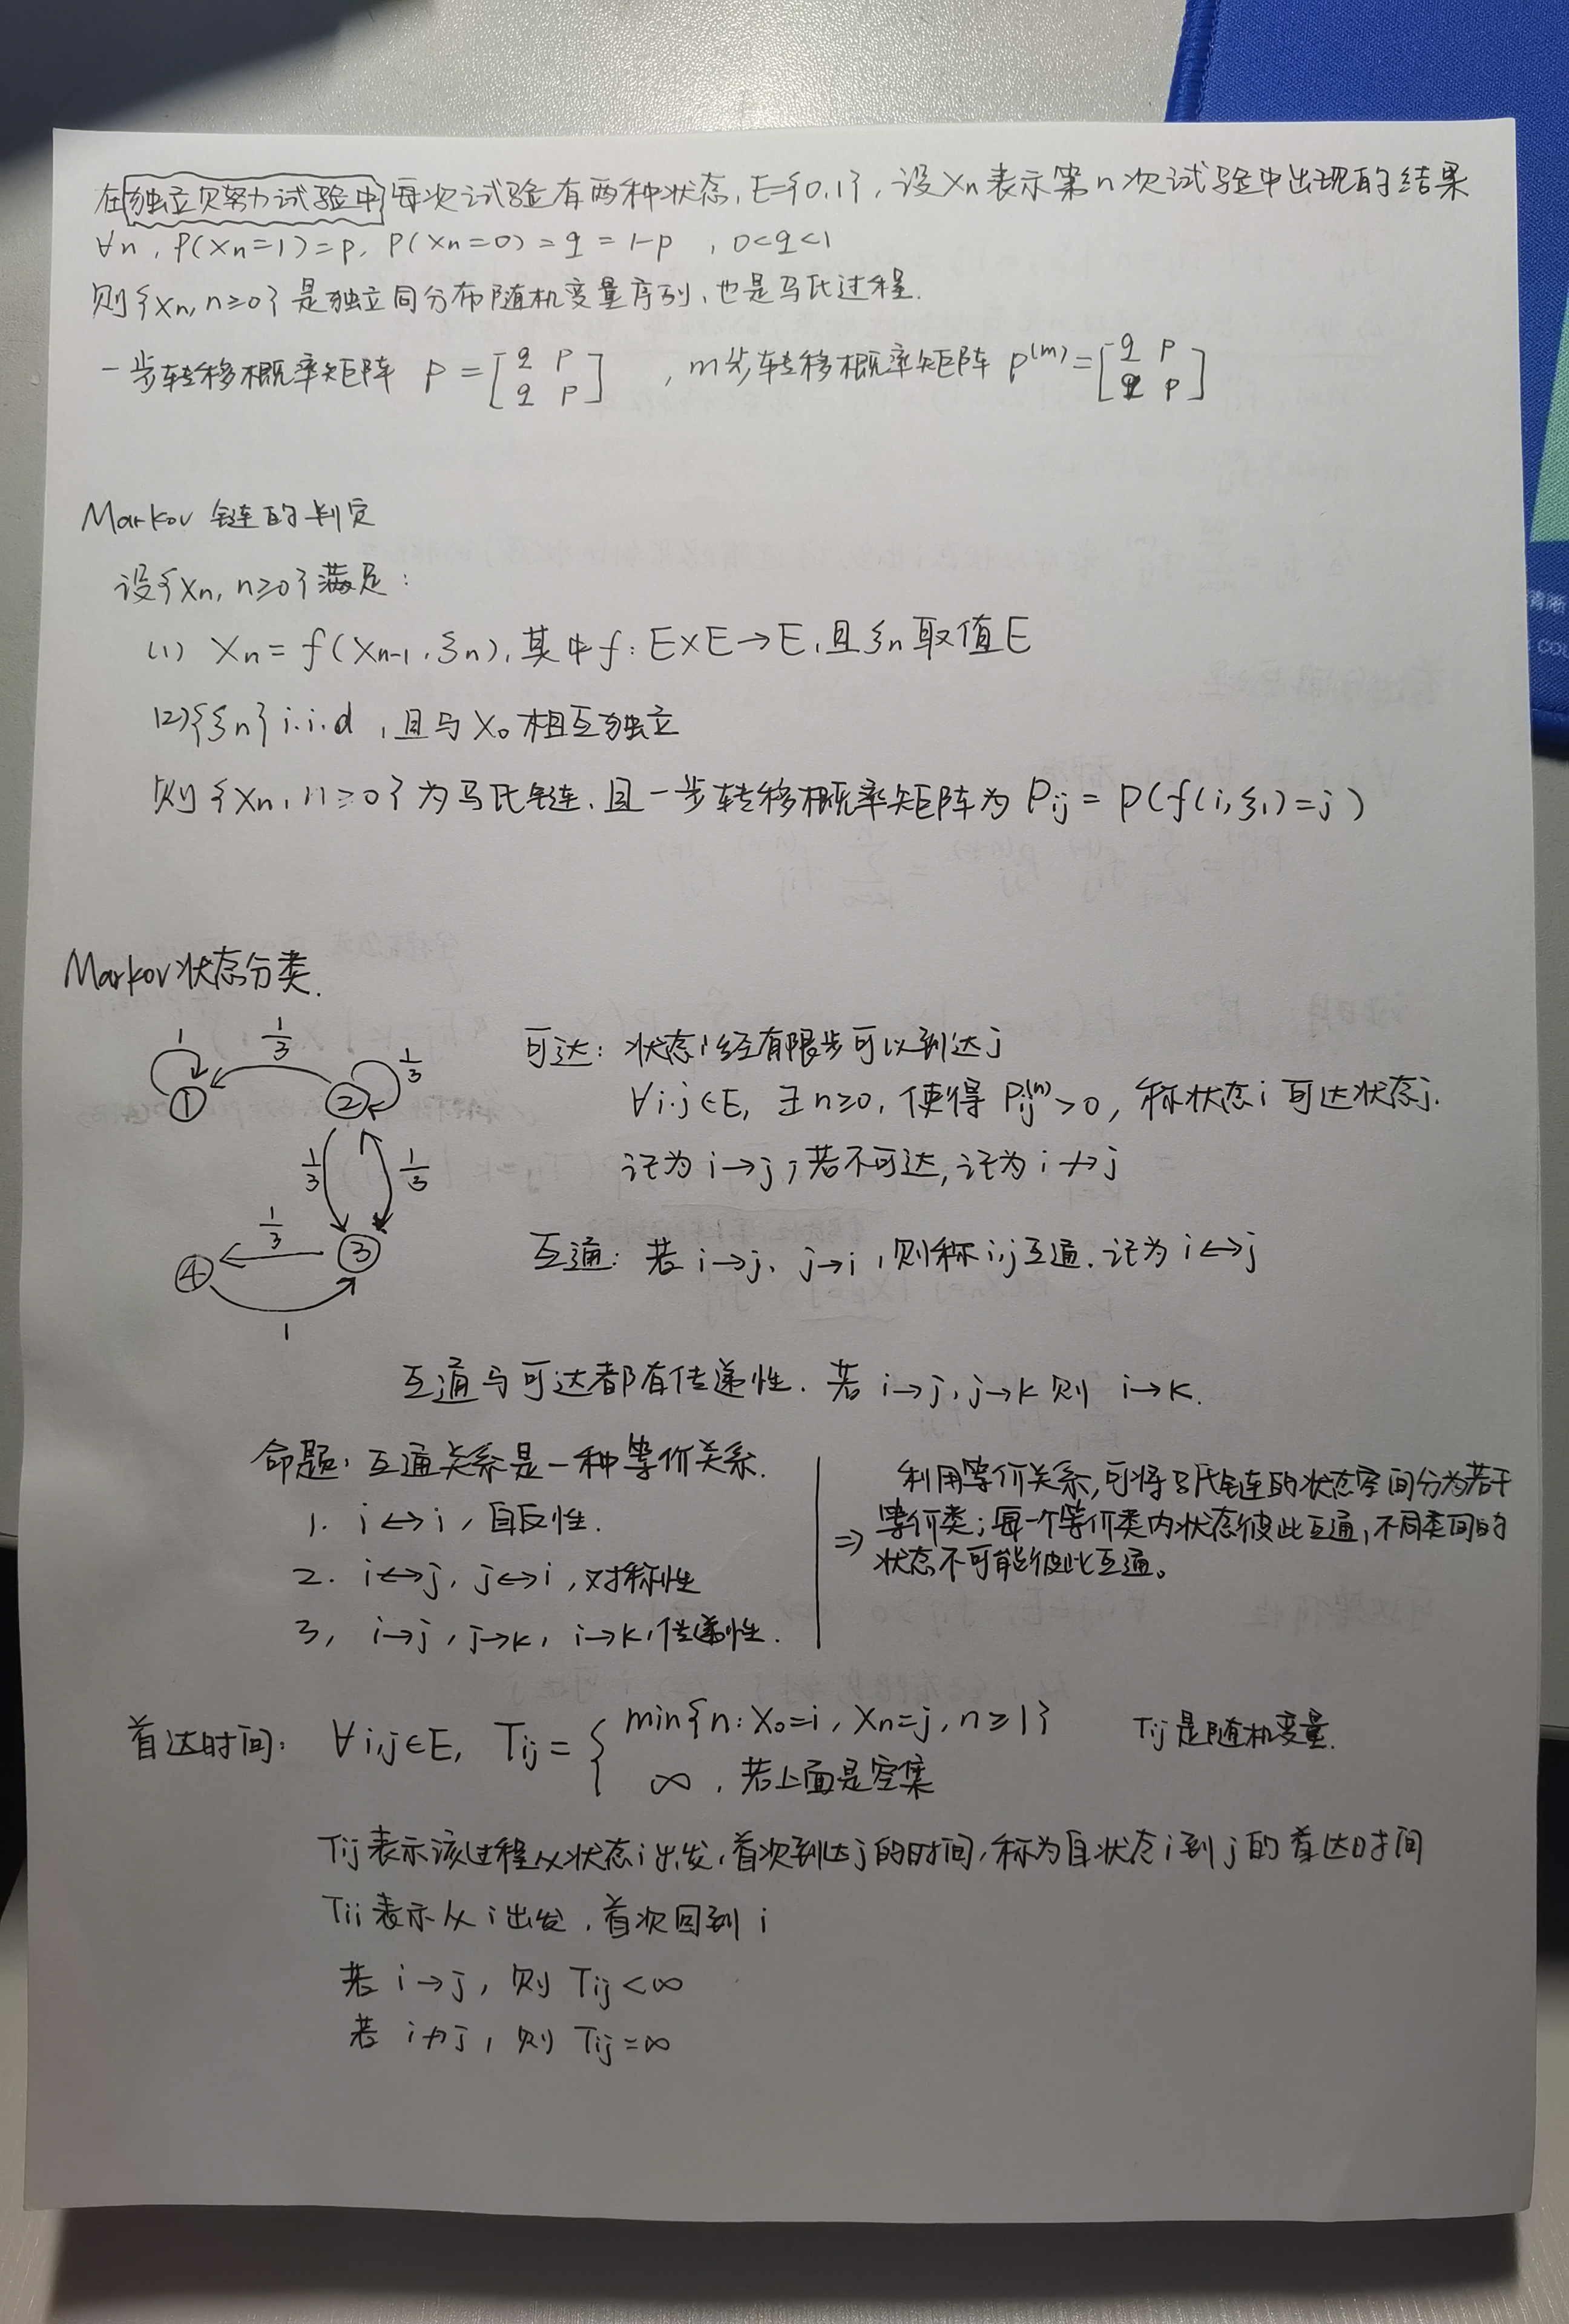 在独立贝努力试验中每次试验有两种状态,E={0,1},设Xn表示第n次试验中出现的结果
∀n, P(Xn=1)=p, P(Xn=0)=q=1-p , 0<q<1
则{Xn,n≥0}是独立同分布随机变量序列,也是马氏过程.
一步转移概率矩阵 P=[q p; q p] ,m步转移概率矩阵 P^(m)=[q p; q p]
Markov 链的判定
设{Xn, n≥0}满足:
(1) Xn=f(Xn-1,ξn),其中f:E×E→E,且ξn取值E
(2){ξn}i.i.d ,且与X0相互独立
则{Xn,n≥0}为马氏链,且一步转移概率矩阵为 Pij=P(f(i,ξ1)=j)
Markov状态分类.
1 1/3 1/3
① ②
1/3 1/3
1/3
④ ③
1
可达: 状态i经有限步可以到达j
∀i.j∈E, ∃n≥0, 使得 Pij^(n)>0, 称状态i可达状态j.
记为i→j,若不可达,记为i↛j
互通: 若i→j, j→i,则称i,j互通.记为i↔j
互通与可达都有传递性. 若i→j,j→k则 i→k.
命题: 互通关系是一种等价关系.
1. i↔i,自反性.
2. i↔j, j↔i,对称性
3, i→j, j→k, i→k,传递性.
利用等价关系,可将马氏链的状态空间分为若干
⇒ 等价类;每一个等价类内状态彼此互通,不同类间的
状态不可能彼此互通。
首达时间: ∀i,j∈E, Tij={ min{n:X0=i,Xn=j,n≥1} Tij是随机变量.
∞ , 若上面是空集
Tij表示该过程从状态i出发,首次到达j的时间,称为自状态i到j的首达时间
Tii表示从i出发,首次回到i
若i→j, 则 Tij<∞
若i↛j, 则 Tij=∞